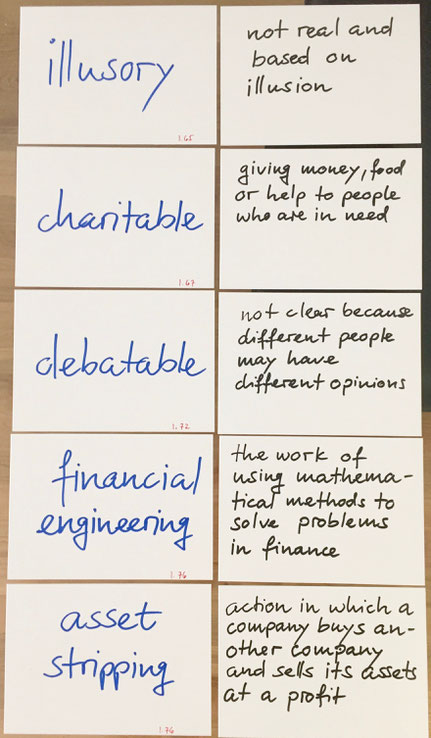 illusory
l. 65
not real and
based on
illusion
charitable
l. 67
giving money, food
or help to people
who are in need
debatable
l. 72
not clear because
different people
may have
different opinions
financial
engineering
l. 76
the work of
using mathema-
tical methods to
solve problems
in finance
asset
stripping
l. 76
action in which a
company buys an-
other company
and sells its assets
at a profit